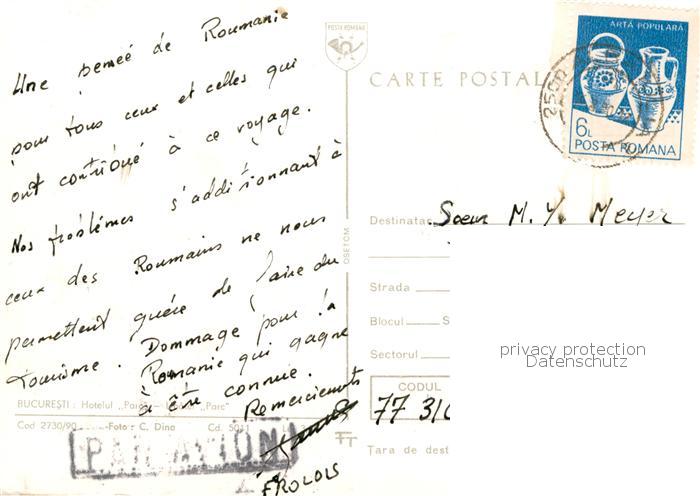 Une pensée de Roumanie
pour tous ceux et celles qui
ont contribué à ce voyage.
Nos problèmes s'additionnant à
ceux des Roumains ne nous
permettent guère de faire du
tourisme. Dommage pour la
Romanie qui gagne
à être connue.
Remerciements
FROLOIS
BUCUREŞTI : Hotelul "Parc"
Cod 2730/90 Foto : C. Dina Cd. 5011
PAR AVION
OSETCM
POSTA ROMANA
CARTE POSTAL
ARTĂ POPULARĂ
6L
POSTA ROMANA
2500
Destinatar Soeur M. Y. Meyer
Strada
Blocul S
Sectorul
privacy protection
Datenschutz
CODUL
77 310
Ţara de dest